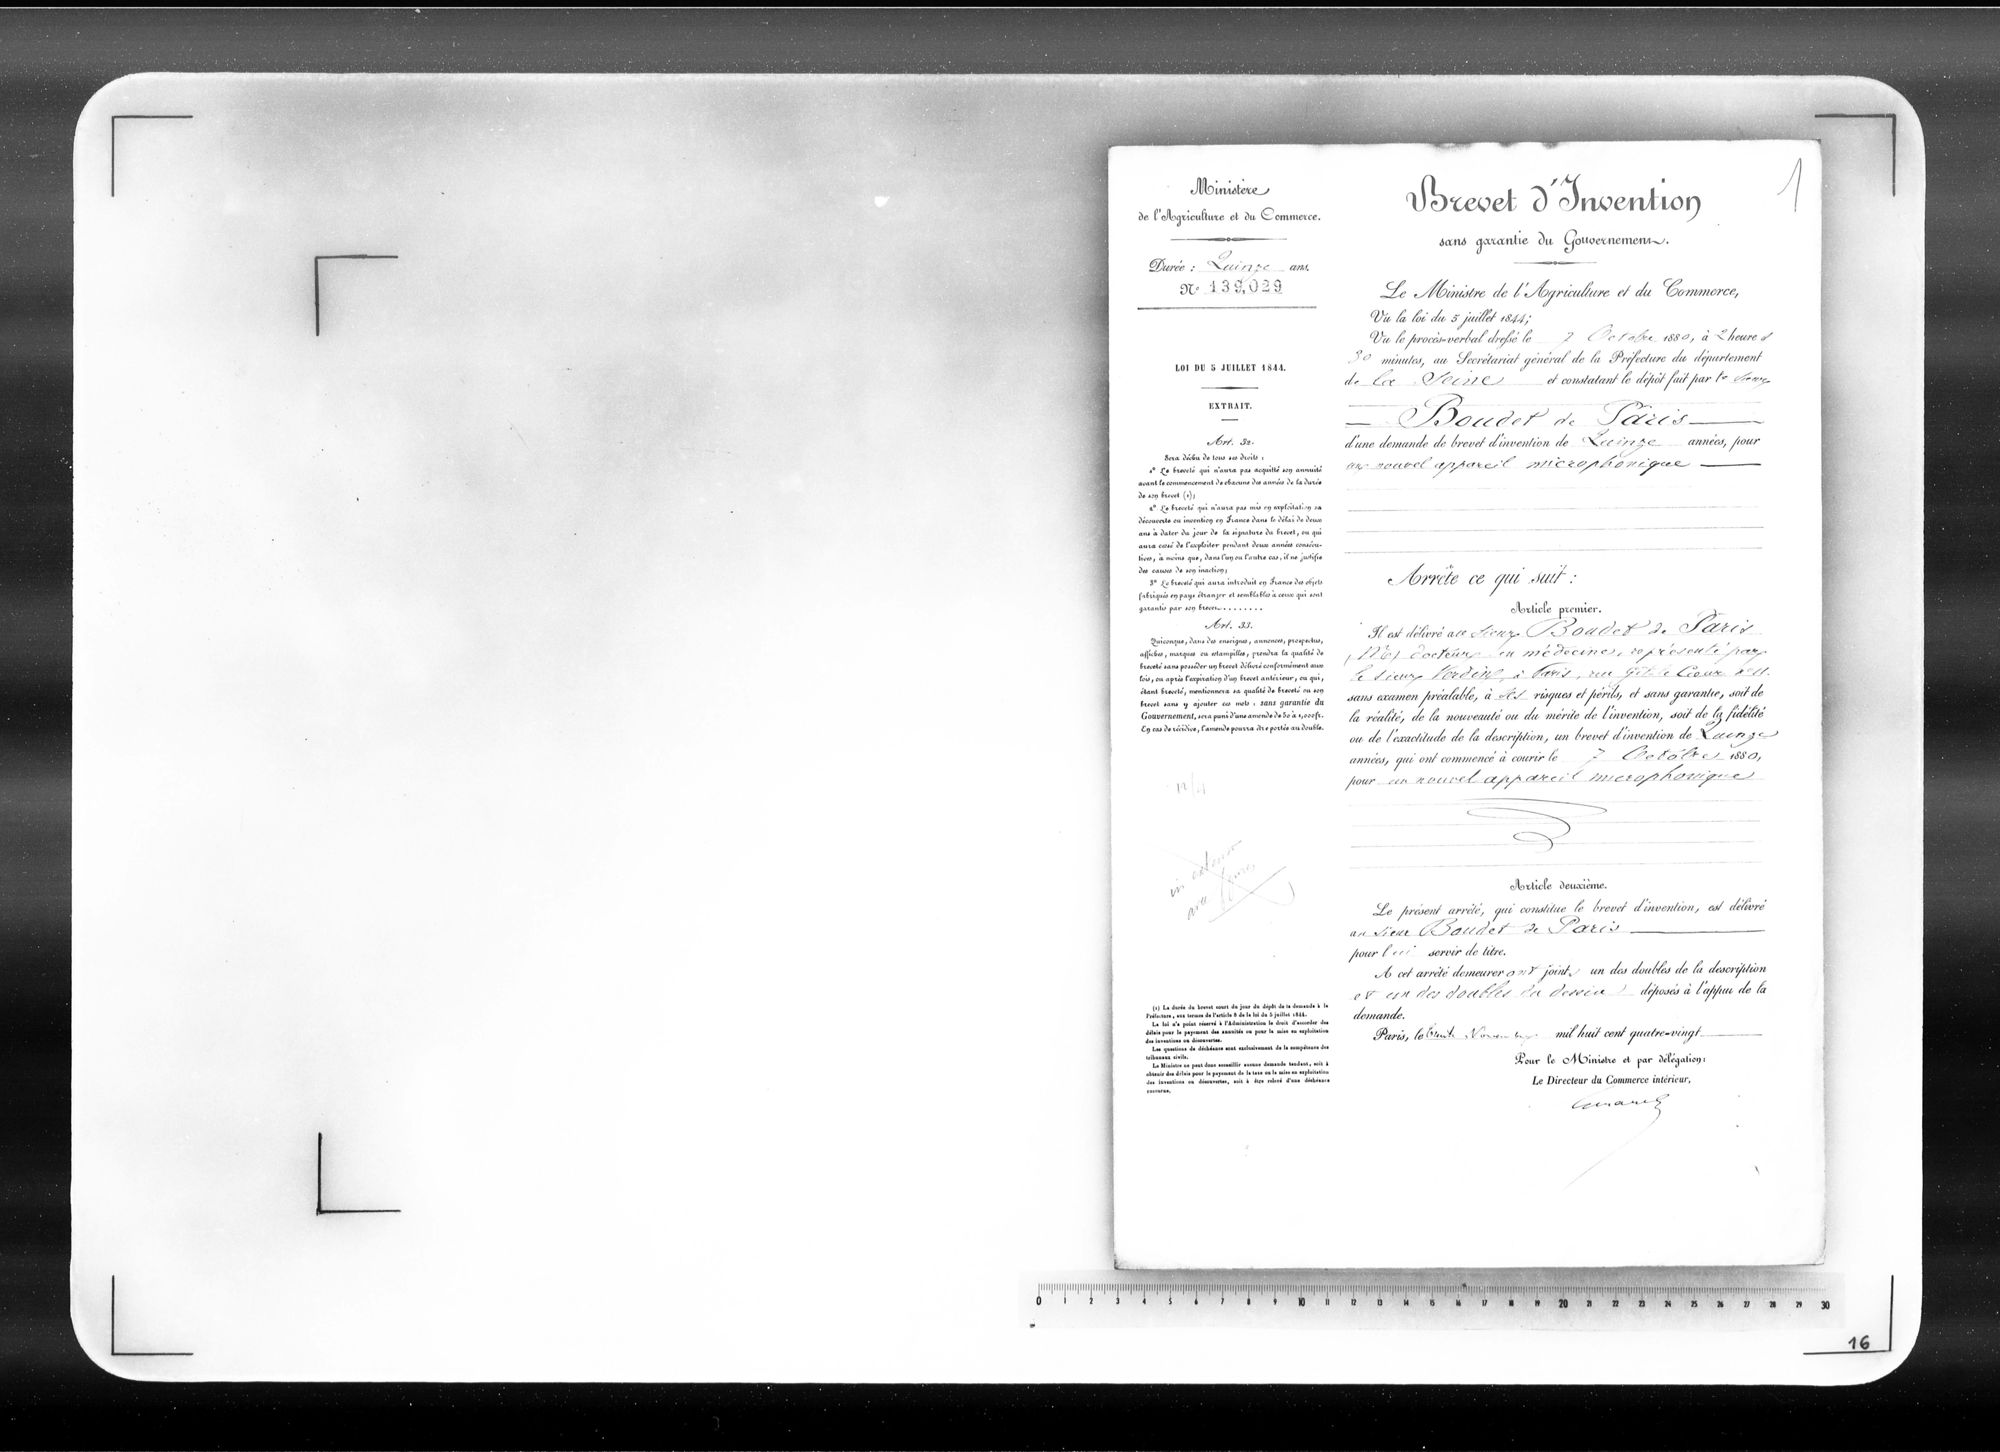 Ministère
de l'Agriculture et du Commerce.
Durée : Quinze ans.
N° 139,029
LOI DU 5 JUILLET 1844.
EXTRAIT.
Art. 32.
Sera déchu de tous ses droits :
1° Le breveté qui n'aura pas acquitté son annuité
avant le commencement de chacune des années de la durée
de son brevet (1);
2° Le breveté qui n'aura pas mis en exploitation sa
découverte ou invention en France dans le délai de deux
ans à dater du jour de la signature du brevet, ou qui
aura cessé de l'exploiter pendant deux années consécu-
tives, à moins que, dans l'un ou l'autre cas, il ne justifie
des causes de son inaction;
3° Le breveté qui aura introduit en France des objets
fabriqués en pays étranger et semblables à ceux qui sont
garantis par son brevet........
Art. 33.
Quiconque, dans des enseignes, annonces, prospectus,
affiches, marques ou estampilles, prendra la qualité de
breveté sans posséder un brevet délivré conformément aux
lois, ou après l'expiration d'un brevet antérieur, ou qui,
étant breveté, mentionnera sa qualité de breveté ou son
brevet sans y ajouter ces mots : sans garantie du
Gouvernement, sera puni d'une amende de 50 à 1,000 fr.
En cas de récidive, l'amende pourra être portée au double.
in extenso
avec figures
(1) La durée du brevet court du jour du dépôt de la demande à la
Préfecture, aux termes de l'article 8 de la loi du 5 juillet 1844.
La loi n'a point réservé à l'Administration le droit d'accorder des
délais pour le payement des annuités ou pour la mise en exploitation
des inventions ou découvertes.
Les questions de déchéance sont exclusivement de la compétence des
tribunaux civils.
Le Ministre ne peut donc accueillir aucune demande tendant, soit à
obtenir des délais pour le payement de la taxe ou la mise en exploitation
des inventions ou découvertes, soit à être relevé d'une déchéance
encourue.
1
Brevet d'Invention
sans garantie du Gouvernement.
Le Ministre de l'Agriculture et du Commerce,
Vu la loi du 5 juillet 1844;
Vu le procès-verbal dressé le 7 Octobre 1880, à 2 heures
30 minutes, au Secrétariat général de la Préfecture du département
de la Seine et constatant le dépôt fait par le Sieur
Boudet de Pâris
d'une demande de brevet d'invention de Quinze années, pour
un nouvel appareil microphonique
Arrête ce qui suit :
Article premier.
Il est délivré au Sieur Boudet de Pâris
(M.) docteur en médecine, représenté par
le Sieur à Paris, rue Gît le Cœur n° 11.
sans examen préalable, à ses risques et périls, et sans garantie, soit de
la réalité, de la nouveauté ou du mérite de l'invention, soit de la fidélité
ou de l'exactitude de la description, un brevet d'invention de Quinze
années, qui ont commencé à courir le 7 Octobre 1880,
pour un nouvel appareil microphonique
Article deuxième.
Le présent arrêté, qui constitue le brevet d'invention, est délivré
au Sieur Boudet de Paris
pour lui servir de titre.
A cet arrêté demeureront joints un des doubles de la description
et un des doubles du dessin déposés à l'appui de la
demande.
Paris, le trente Novembre mil huit cent quatre-vingt
Pour le Ministre et par délégation:
Le Directeur du Commerce intérieur,
0 1 2 3 4 5 6 7 8 9 10 11 12 13 14 15 16 17 18 19 20 21 22 23 24 25 26 27 28 29 30
16